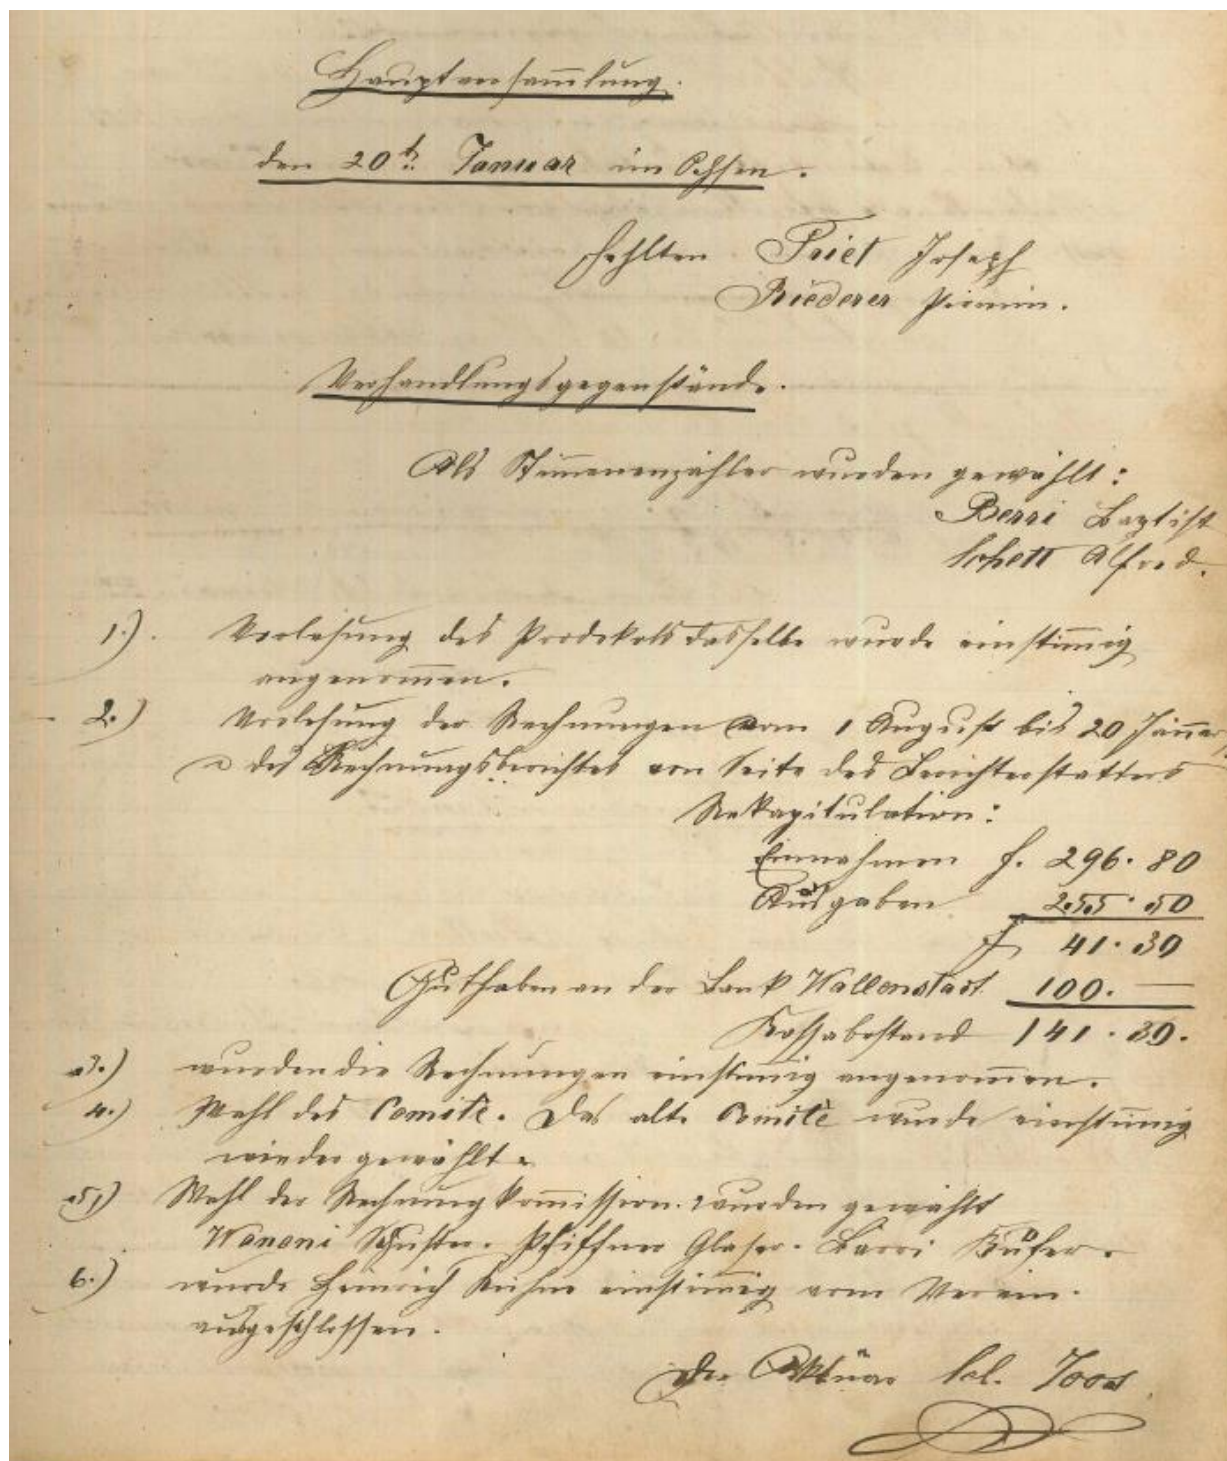 Hauptversam̄lung.
den 20t. Januar im Ochsen.
Fehlten Triet Joseph
Riederer Pirmin.
Verhandlungsgegenstände.
Als Stim̄enenzähler wurden gewählt:
Berri Baptist
Schett Alfred.
1.). Verlesung des Prodokols dasselbe wurde einstim̄ig
angenom̄en.
2.) Verlesung der Rechnungen vom 1 August bis 20 Jän̄er
des Rechnungsberichtes von Seite des Berichterstatters
Rekapitulation:
Einnahmen f. 296.80
Ausgaben 255.50
f 41.30
Guthaben an der Bank Wallenstadt 100.—
Kassabestand 141.30.
3.) wurden die Rechnungen einstim̄ig angenom̄en.
4.) Wahl des Comitè. Das alte Comitè wurde einstim̄ig
wieder gewählt.
5.) Wahl der Rechnungkom̄ission. wurden gewählt
Wanoni Schuster. Pfiffner Glaser. Barri Küfer.
6.) wurde Heinrich Kühne einstim̄ig vom Verein.
ausgeschlossen.
Der Aktuar Joos